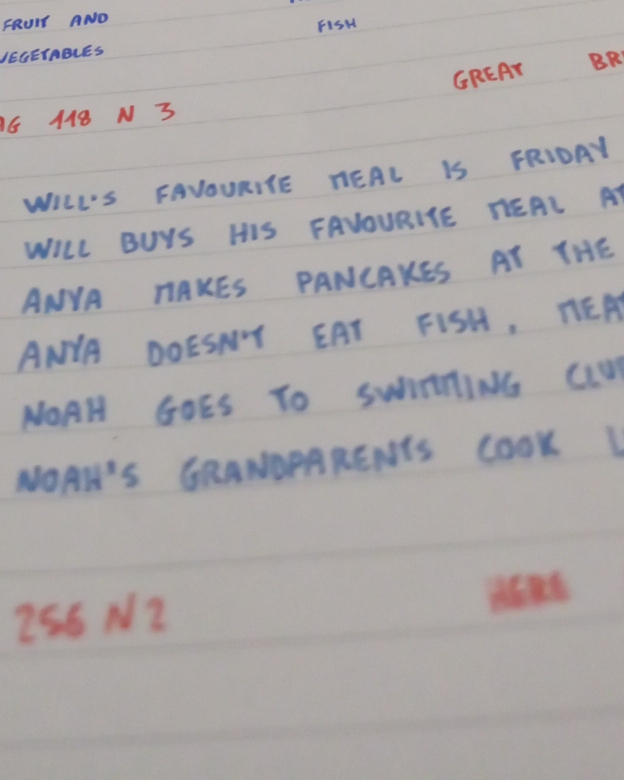 FRUIT AND FISH
VEGETABLES
118 N 3 GREAT
WILL'S FAVOURITE MEAL IS FRIDAY
WILL BUYS HIS FAVOURITE MEAL
ANYA MAKES PANCAKES AT THE
ANYA DOESN'T EAT FISH,
NOAH GOES TO SWIMMING
NOAH'S GRANDPARENTS COOK
256 N 2 HERE